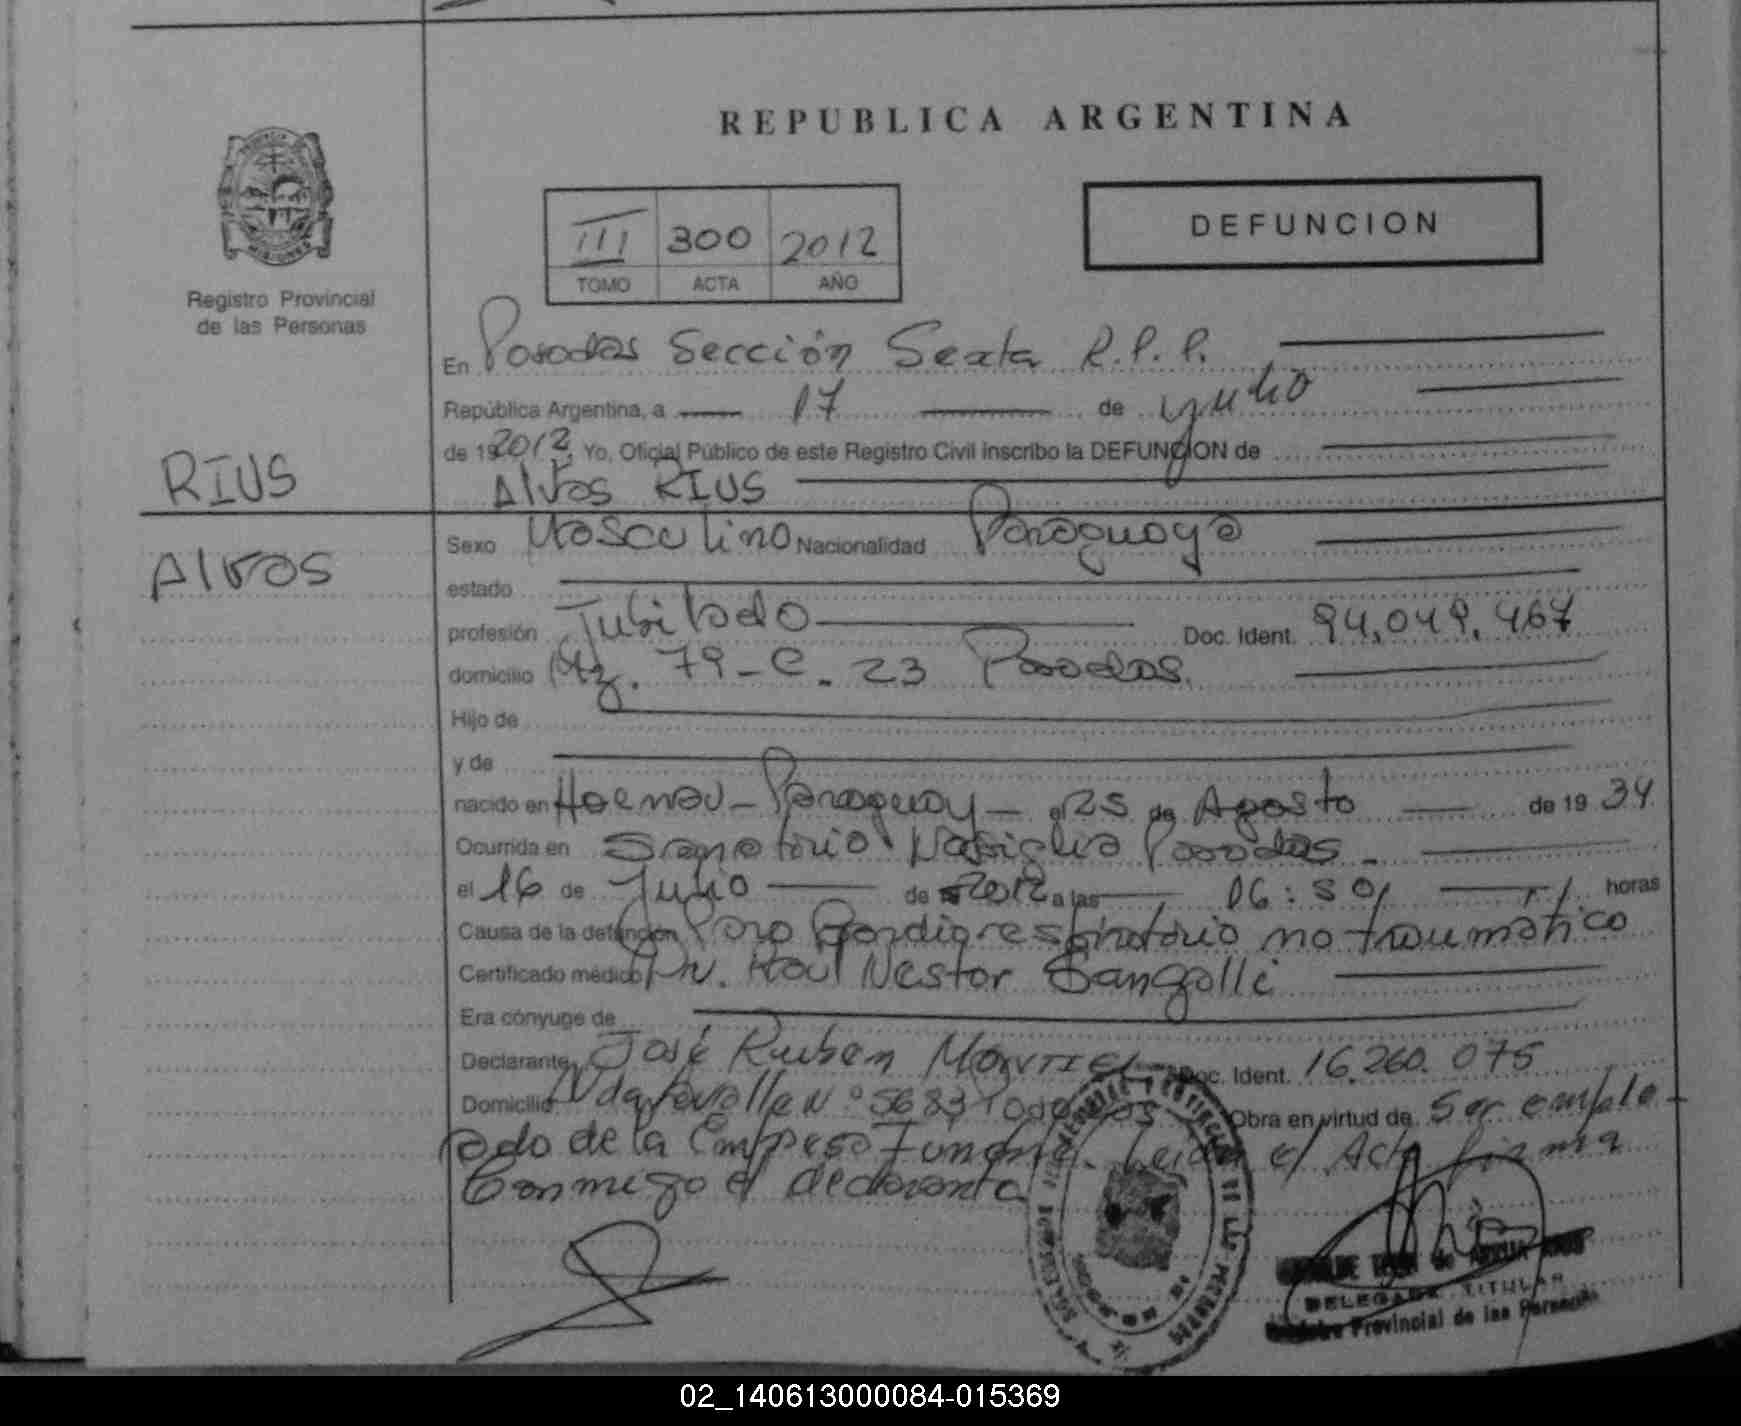 REPUBLICA ARGENTINA
DEFUNCION
III 300 2012
TOMO ACTA AÑO
Registro Provincial
de las Personas
En Posadas Sección Sexta R.P.P.
República Argentina, a 17 de julio
de 19 2012 Yo, Oficial Público de este Registro Civil inscribo la DEFUNCION de
RIUS
Alvos RIUS
Alvos
Sexo Masculino Nacionalidad Paraguaya
estado
profesión Jubilado Doc. Ident. 94.049.467
domicilio Mz. 79-C. 23 Posadas.
Hijo de
y de
nacido en Hoenau - Paraguay - el 25 de Agosto de 19 34
Ocurrida en Sanatorio Posadas -
el 16 de Julio de 2012 a las 06:30 horas
Causa de la defunción Paro Cardiorespiratorio no traumático
Certificado médico Dr. Raul Nestor Sangalli
Era cónyuge de
Declarante José Ruben Montiel Doc. Ident. 16.260.075
Domicilio N° 5683 Posadas Obra en virtud de ser emple
ado de la Empresa Funebre. Leida el Acta firma
Conmigo el declarante
DELEGADA TITULAR
Provincial de las Personas
02_140613000084-015369